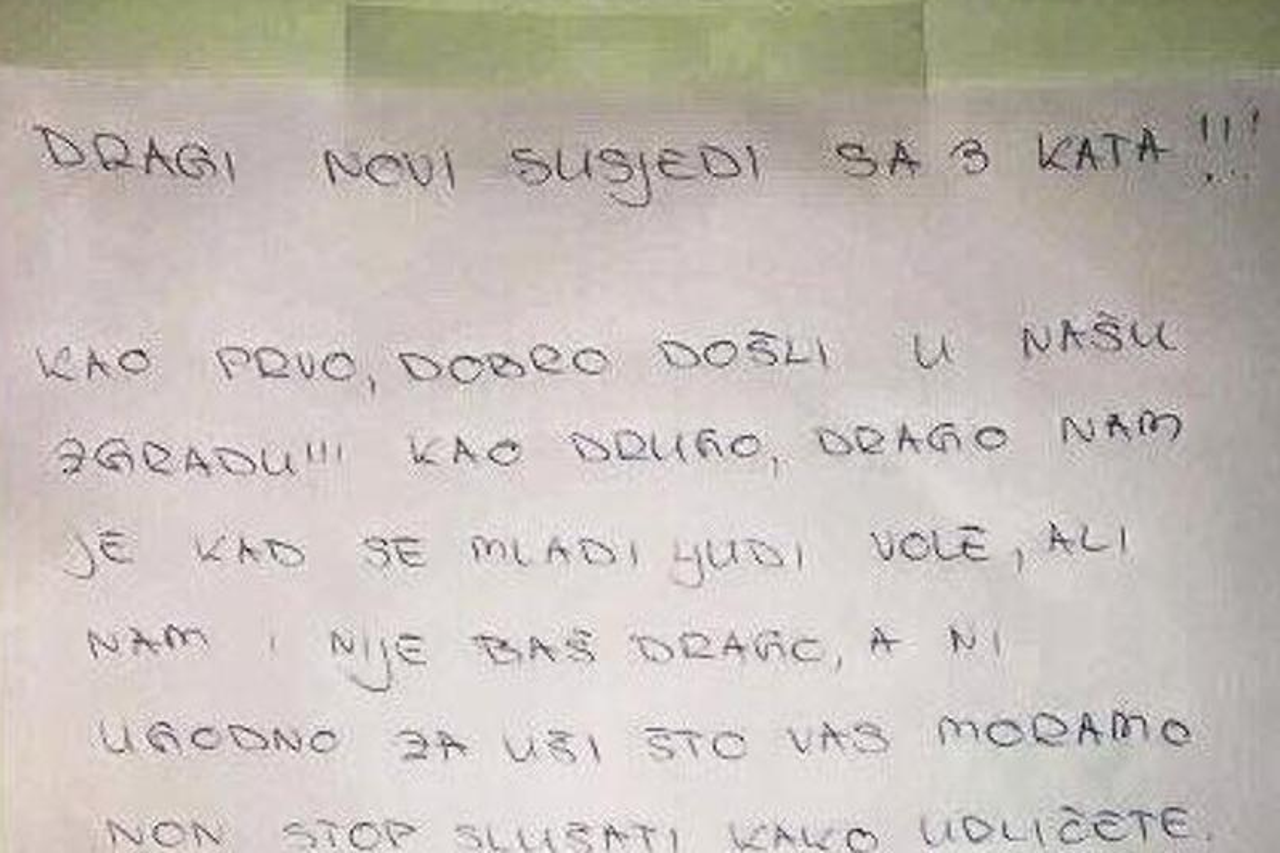 DRAGI NOVI SUSJEDI SA 3 KATA!!!
KAO PRVO, DOBRO DOŠLI U NAŠU
ZGRADU!!! KAO DRUGO, DRAGO NAM
JE KAD SE MLADI LJUDI VOLE, ALI
NAM I NIJE BAŠ DRAGO, A NI
UGODNO ZA UŠI ŠTO VAS MORAMO
NON STOP SLUŠATI KAKO UDLIČETE.